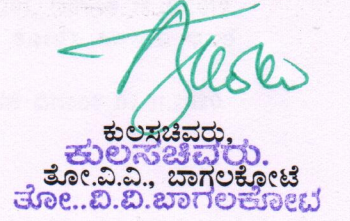 ಕುಲಸಚಿವರು,
ಕುಲಸಚಿವರು.
ತೋ.ವಿ.ವಿ., ಬಾಗಲಕೋಟೆ
ತೋ..ವಿ.ವಿ.ಬಾಗಲಕೋಟ